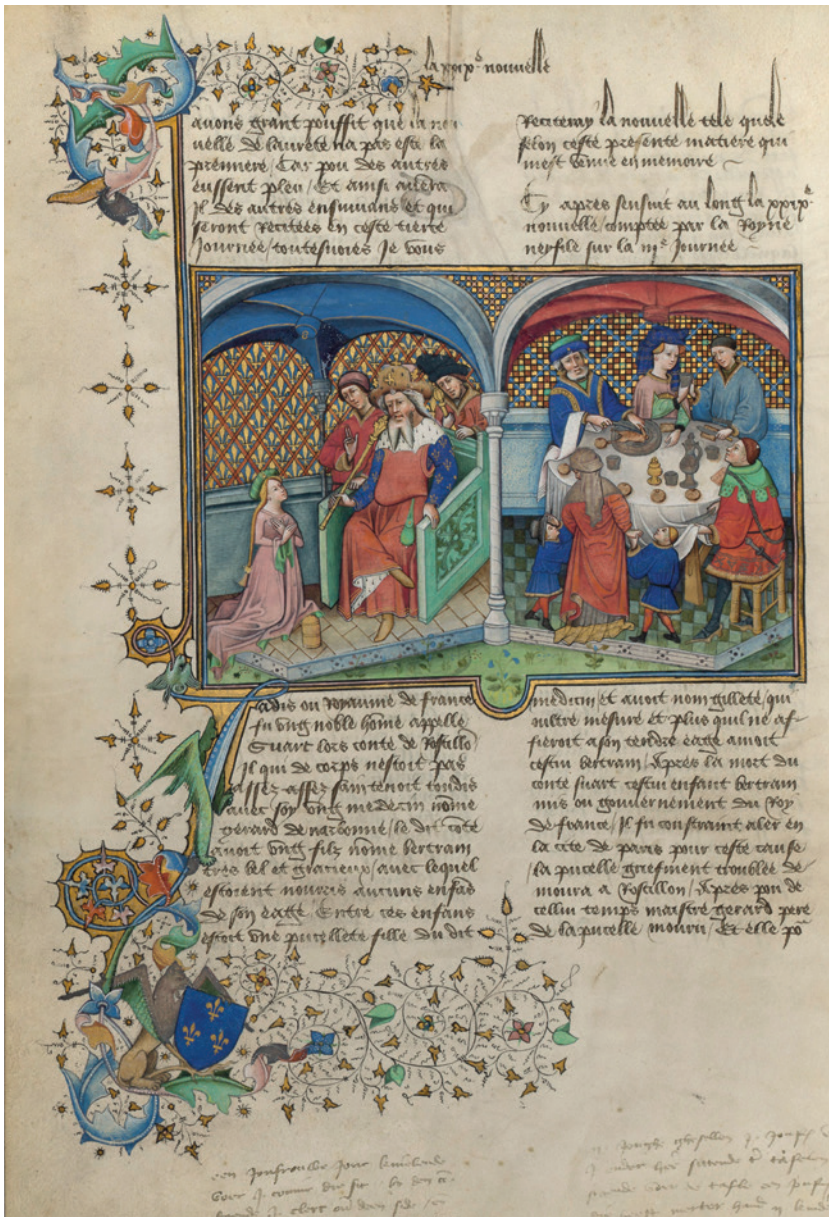 la xxix.e nouvelle
auons grant pouffit que la no
uelle de laurete na pas este la
premiere / Car pou des autres
eussent pleu / Et ainsi aulera
il des autres ensuiuans et qui
seront Recitees en ceste tierce
Journee / toutesuoies Je vous
Reciteray la nouuelle tele quele
selon ceste presente matiere qui
mest venue en memoire
Cy apres sensuit au long la xxix.e
nouuelle / comptee par la Royne
neyfile sur la iij.e Journee
Jadis ou Royaume de france
fu vng noble home appelle
Suart lors conte de Rossillo
Il qui de corps nestoit pas
assez assez sain tenoit tousdis
auec soy vng medecin nome
gerard de narbonne / le dit cote
auoit vng filz nome bertram
tres bel et gracieux / auec lequel
estoient nourris aucuns enfas
de son eage Entre ces enfans
estoit vne pucellete fille du dit
medicin / et auoit nom gillete / qui
oultre mesure et plus quil ne af-
fieroit a son tendre eage amoit
cestui bertram / Apres la mort du
conte suart cestui enfant bertram
mis ou gouuernement du Roy
de france / Il fu constraint aler en
la cite de paris pour ceste cause
/ la pucelle griefment troublee de-
moura a Rossillon / Apres pou de
cellui temps maistre gerard pere
de la pucelle mouru / Et elle po